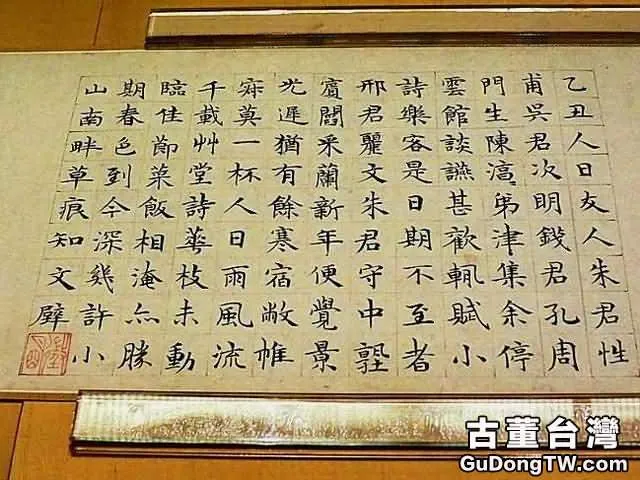 乙丑人日友人朱君性
甫吳君次明錢君孔周
門生陳淳弟津集余停
雲館談讌甚歡輒賦小
詩樂客是日期不至者
邢君麗文朱君守中塾
賓閻采蘭新年便覺景
光遲猶有餘寒宿敝帷
寂莫一杯人日雨風流
千載艸堂詩華枝未動
臨佳節菜飯相淹亦勝
期春色到今深幾許小
山南畔草痕知文璧
古董台灣
GuDongTW.com